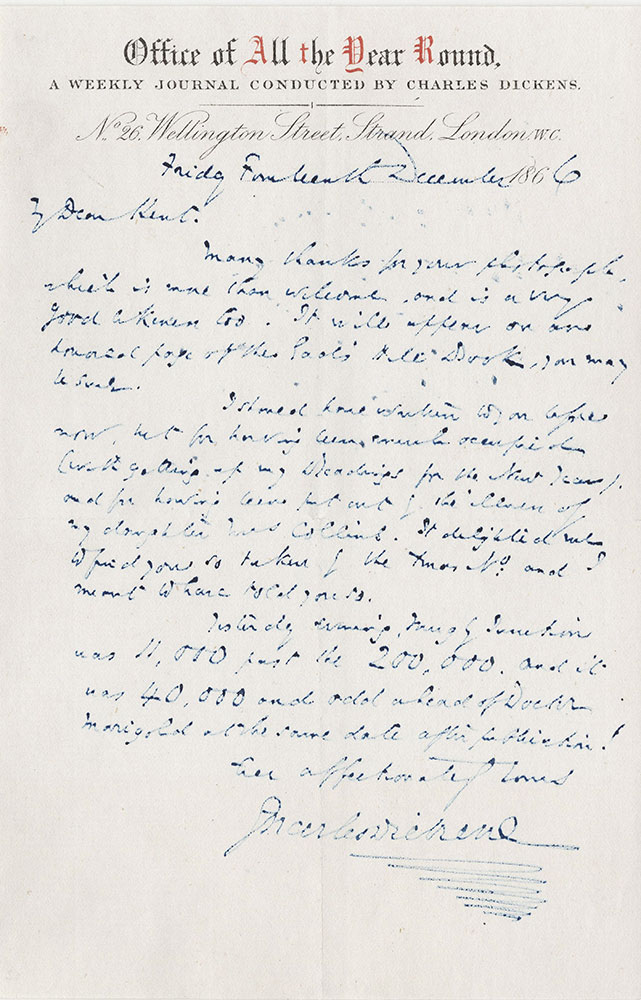 Office of All the Year Round,
A WEEKLY JOURNAL CONDUCTED BY CHARLES DICKENS.
No. 26, Wellington Street, Strand, London, W.C.
Friday Fourteenth December 1866
My Dear Kent.
Many thanks for your photograph,
which is more than welcome, and is a very
good likeness too. It will appear on an
honored page of the Gad's Hill Book, you may
be sure.
I should have written to you before
now, but for having been much occupied
with getting up my Readings for the New Year,
and for having been put out by the illness of
my daughter Mrs Collins. It delighted me
to find you so taken by the Xmas No. and I
meant to have told you so.
Yesterday evening, Mugby Junction
was 11,000 past the 200,000. and it
was 40,000 and odd ahead of Doctor
Marigold at the same date after publication!
Ever affectionately Yours
Charles Dickens